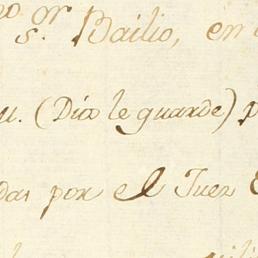 mo or
s. Bailio, en
u. (Dio le guarde) p
das por el Juez